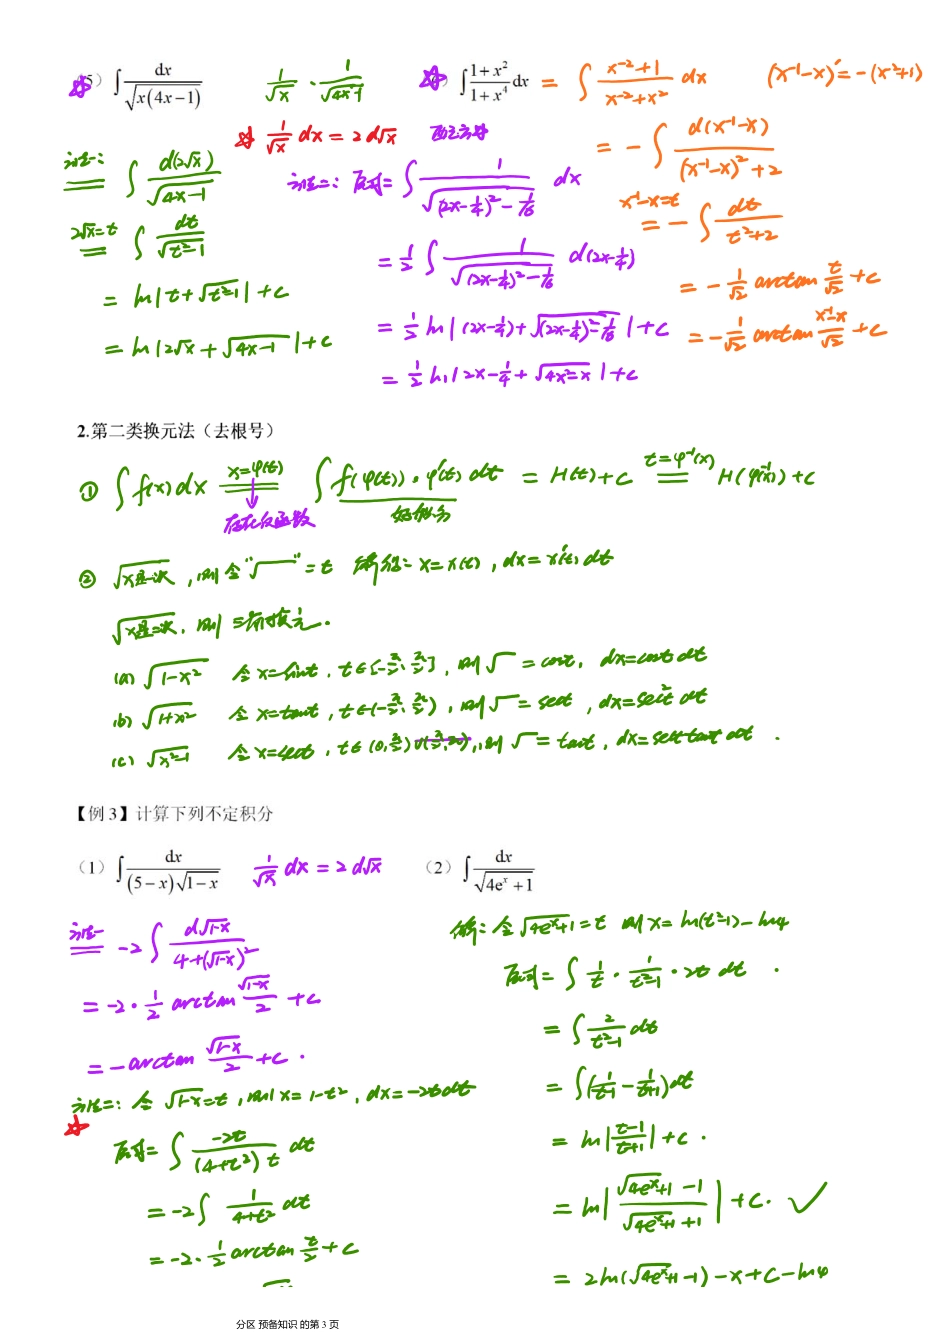 (5) ∫ dx/√(x(4x−1))  1/√x · 1/√(4x−1)
1/√x dx = 2d√x  配完方
方法一: ∫ d(2√x)/√(4x−1)
2√x=t ∫ dt/√(t²−1)
= ln|t+√(t²−1)|+C
= ln|2√x+√(4x−1)|+C
方法二: 原式= ∫ 1/√((2x−1/4)²−1/16) dx
= 1/2 ∫ 1/√((2x−1/4)²−1/16) d(2x−1/4)
= 1/2 ln|(2x−1/4)+√((2x−1/4)²−1/16)|+C
= 1/2 ln|2x−1/4+√(4x²−x)|+C
∫ (1+x²)/(1+x⁴) dx = ∫ (x⁻²+1)/(x⁻²+x²) dx  (x⁻¹−x)′=−(x⁻²+1)
= −∫ d(x⁻¹−x)/((x⁻¹−x)²+2)
x⁻¹−x=t = −∫ dt/(t²+2)
= −1/√2 arctan t/√2 +C
= −1/√2 arctan (x⁻¹−x)/√2 +C
2.第二类换元法（去根号）
① ∫f(x)dx x=φ(t) ∫f(φ(t))·φ′(t)dt = H(t)+C t=φ⁻¹(x) H(φ⁻¹(x))+C
存在反函数  好积分
② √x是一次,则令"√"=t 解得:x=x(t),dx=x′(t)dt
√x是二次,则三角换元.
(a) √(1−x²) 令x=sint,t∈[−π/2,π/2],则√=cost,dx=costdt
(b) √(1+x²) 令x=tant,t∈(−π/2,π/2),则√=sect,dx=sec²t dt
(c) √(x²−1) 令x=sect,t∈(0,π/2),则√=tant,dx=sect tant dt.
【例3】计算下列不定积分
（1）∫ dx/((5−x)√(1−x))  1/√x dx=2d√x
方法一 −2∫ d√(1−x)/(4+(√(1−x))²)
=−2·1/2 arctan √(1−x)/2 +C
=−arctan √(1−x)/2 +C.
方法二:令√(1−x)=t,则x=1−t²,dx=−2tdt
原式= ∫ −2t/((4+t²)t) dt
= −2∫ 1/(4+t²) dt
= −2·1/2 arctan t/2 +C
（2）∫ dx/√(4eˣ+1)
解:令√(4eˣ+1)=t 则x=ln(t²−1)−ln4
原式= ∫ 1/t · 1/(t²−1) · 2t dt.
= ∫ 2/(t²−1) dt
= ∫(1/(t−1)−1/(t+1))dt
= ln|(t−1)/(t+1)|+C.
= ln|(√(4eˣ+1)−1)/(√(4eˣ+1)+1)|+C. ✓
= 2ln(√(4eˣ+1)−1)−x+C−ln4
分区 预备知识 的第 3 页